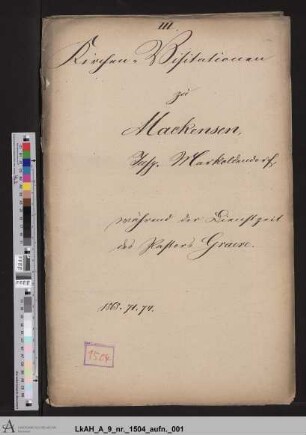 III.
Kirchen-Visitationen
zu
Mackensen,
Insp. Markoldendorf,
während der Dienstzeit
des Pastors
1868. 71. 74.
1504
LkAH_A_9_nr._1504_aufn._001